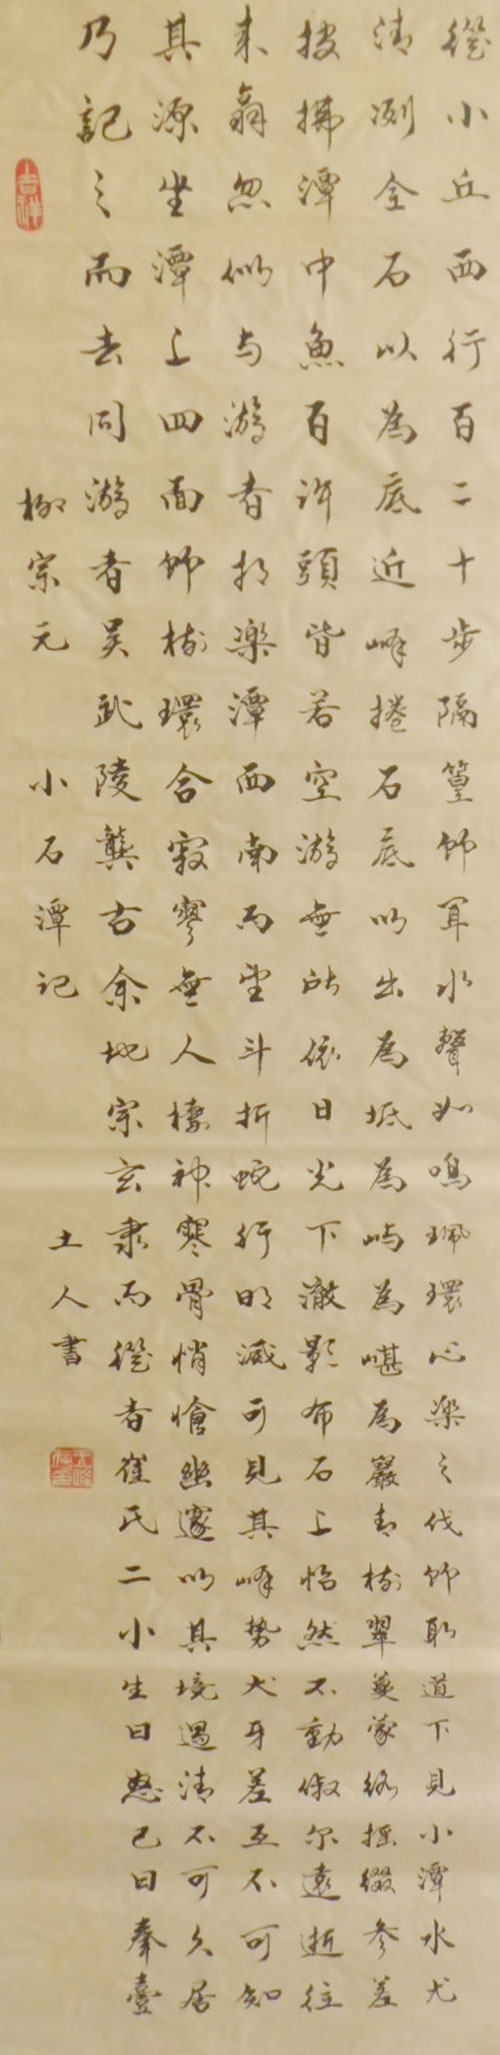 從小丘西行百二十步隔篁竹聞水聲如鳴珮環心樂之伐竹取道下見小潭水尤
清冽全石以為底近岸捲石底以出為坻為嶼為嵁為巖青樹翠蔓蒙絡搖綴參差
披拂潭中魚百許頭皆若空游無所依日光下澈影布石上怡然不動俶尔遠逝往
來翕忽似与游者相樂潭西南而望斗折蛇行明滅可見其岸勢犬牙差互不可知
其源坐潭上四面竹樹環合寂寥無人棲神寒骨悄愴幽邃以其境過清不可久居
乃記之而去同游者吳武陵龔古余弟宗玄隸而從者崔氏二小生曰恕己曰奉壹
柳宗元 小石潭記 土人書
吉祥